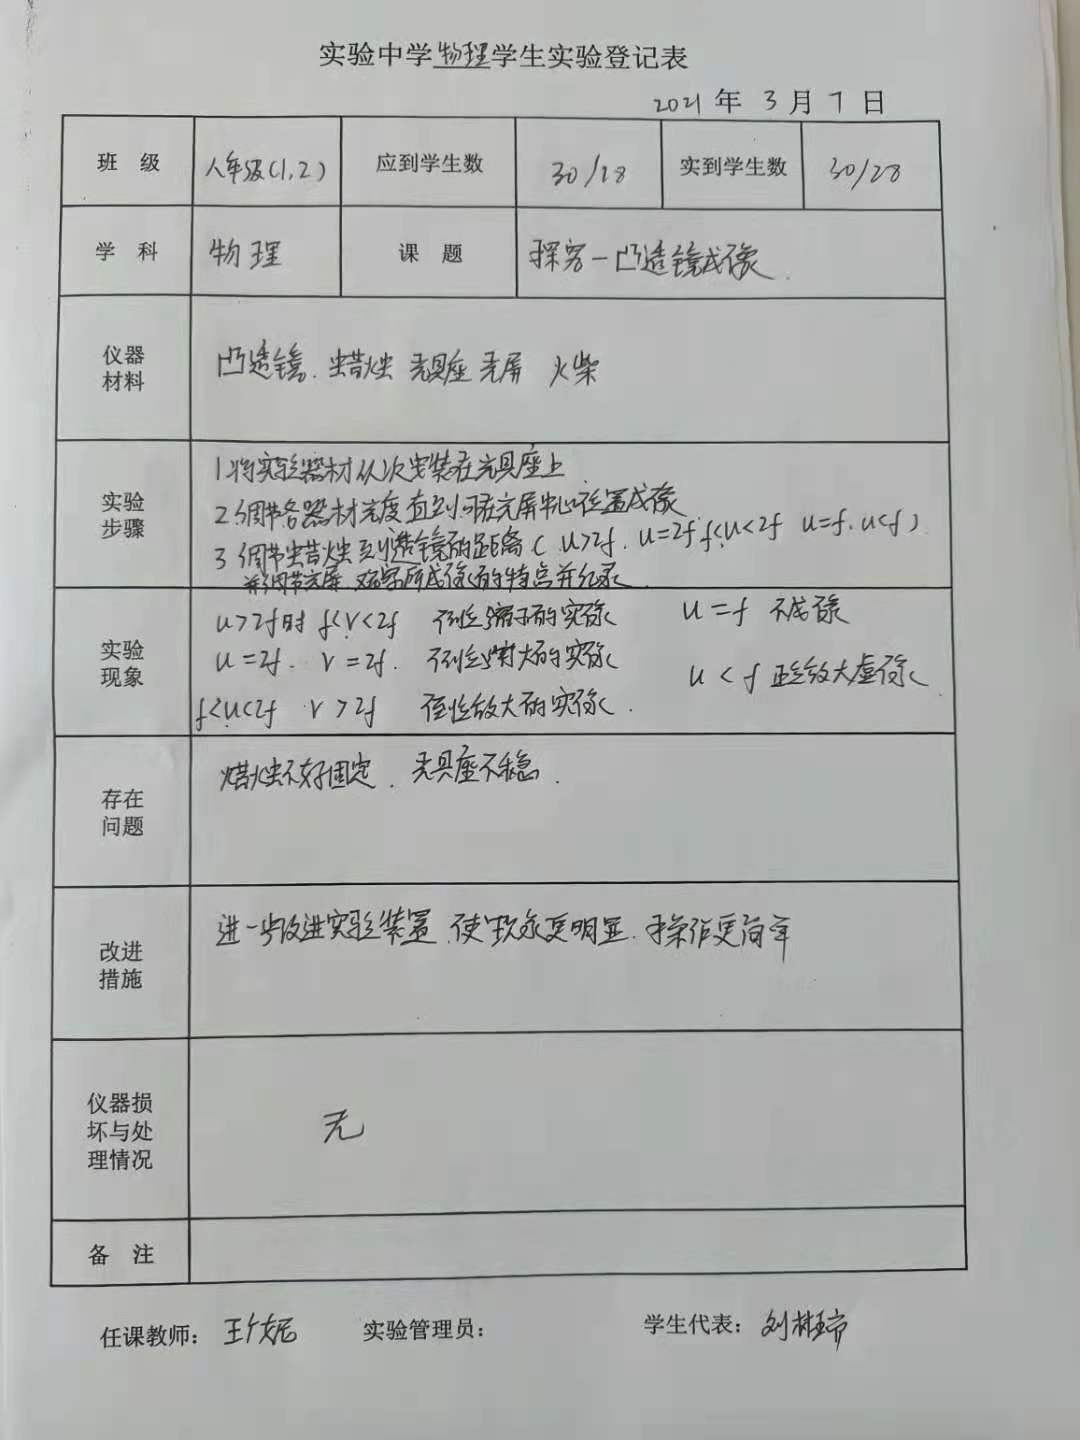 实验中学物理学生实验登记表
2021年3月7日
班 级 八年级(1,2) 应到学生数 30/28 实到学生数 30/28
学 科 物理 课 题 探究一凸透镜成像.
仪器
材料
凸透镜. 蜡烛 光具座 光屏 火柴
实验
步骤
1将实验器材从次安装在光具座上
2调节各器材光度直到可在光屏中心位置成像
3 调节蜡烛到透镜的距离( u>2f. u=2f f<u<2f u=f. u<f)
并调节光屏. 观察所成像的特点并纪录.
实验
现象
u>2f时 f<v<2f 倒立缩小的实像 u=f 不成像
u=2f. v=2f. 倒立等大的实像 u<f 正立放大虚像
f<u<2f v>2f 倒立放大的实像.
存在
问题
蜡烛不好固定. 光具座不稳.
改进
措施
进一步改进实验装置. 使现象更明显. 操作更简单
仪器损
坏与处
理情况
无
备 注
任课教师: 实验管理员: 学生代表: 刘